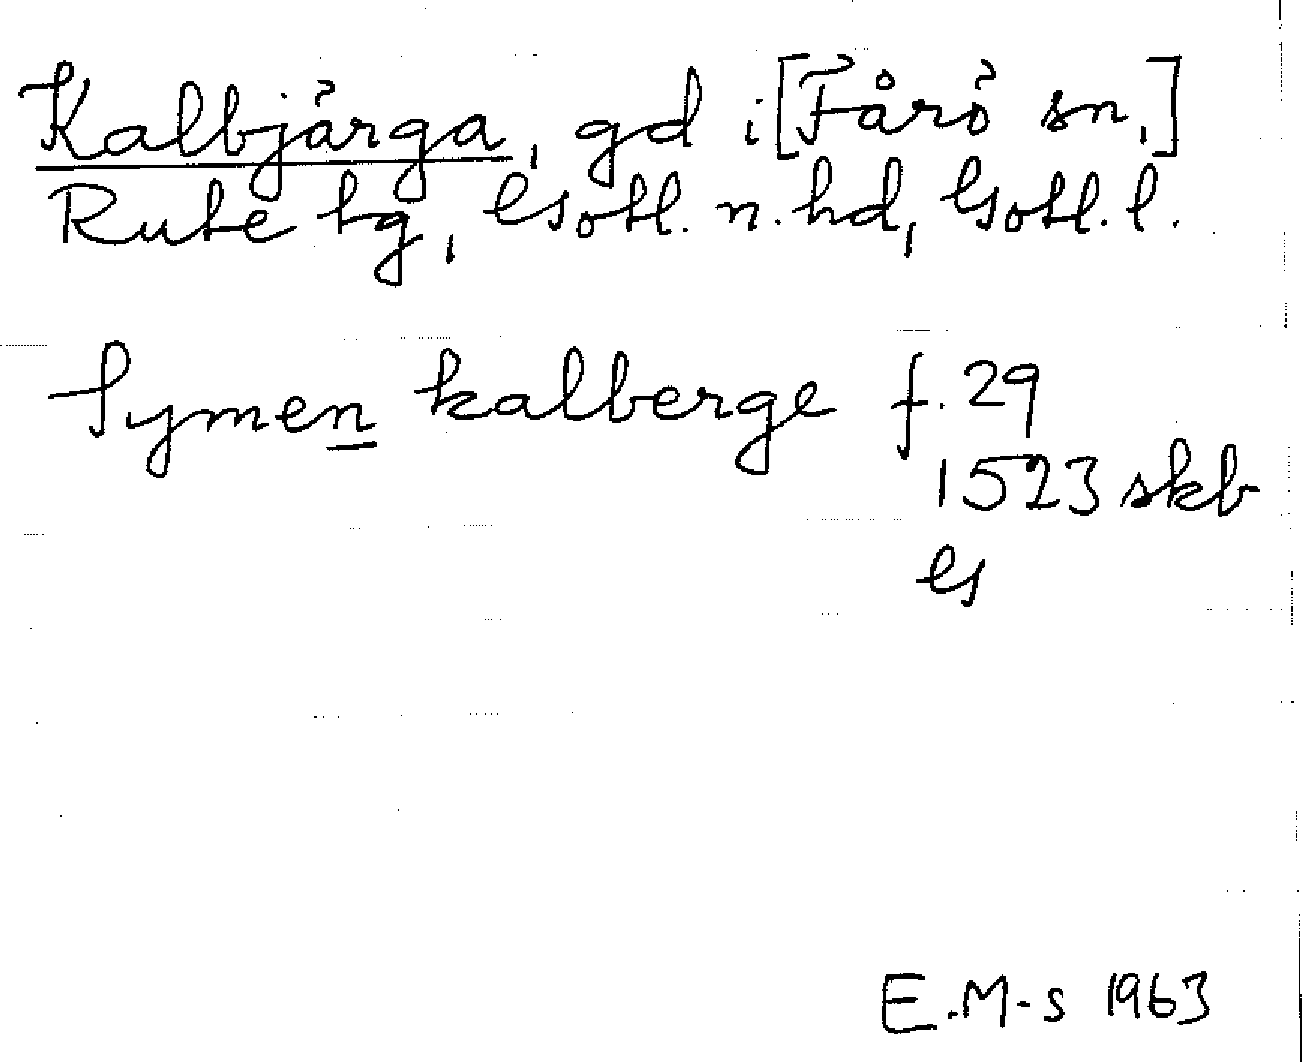 Kalbjärga, gd i [Fårö sn,]
Rute tg, Gotl. n. hd, Gotl. l.
Symen kalberge f. 29
1523 skb
G
E.M-s 1963